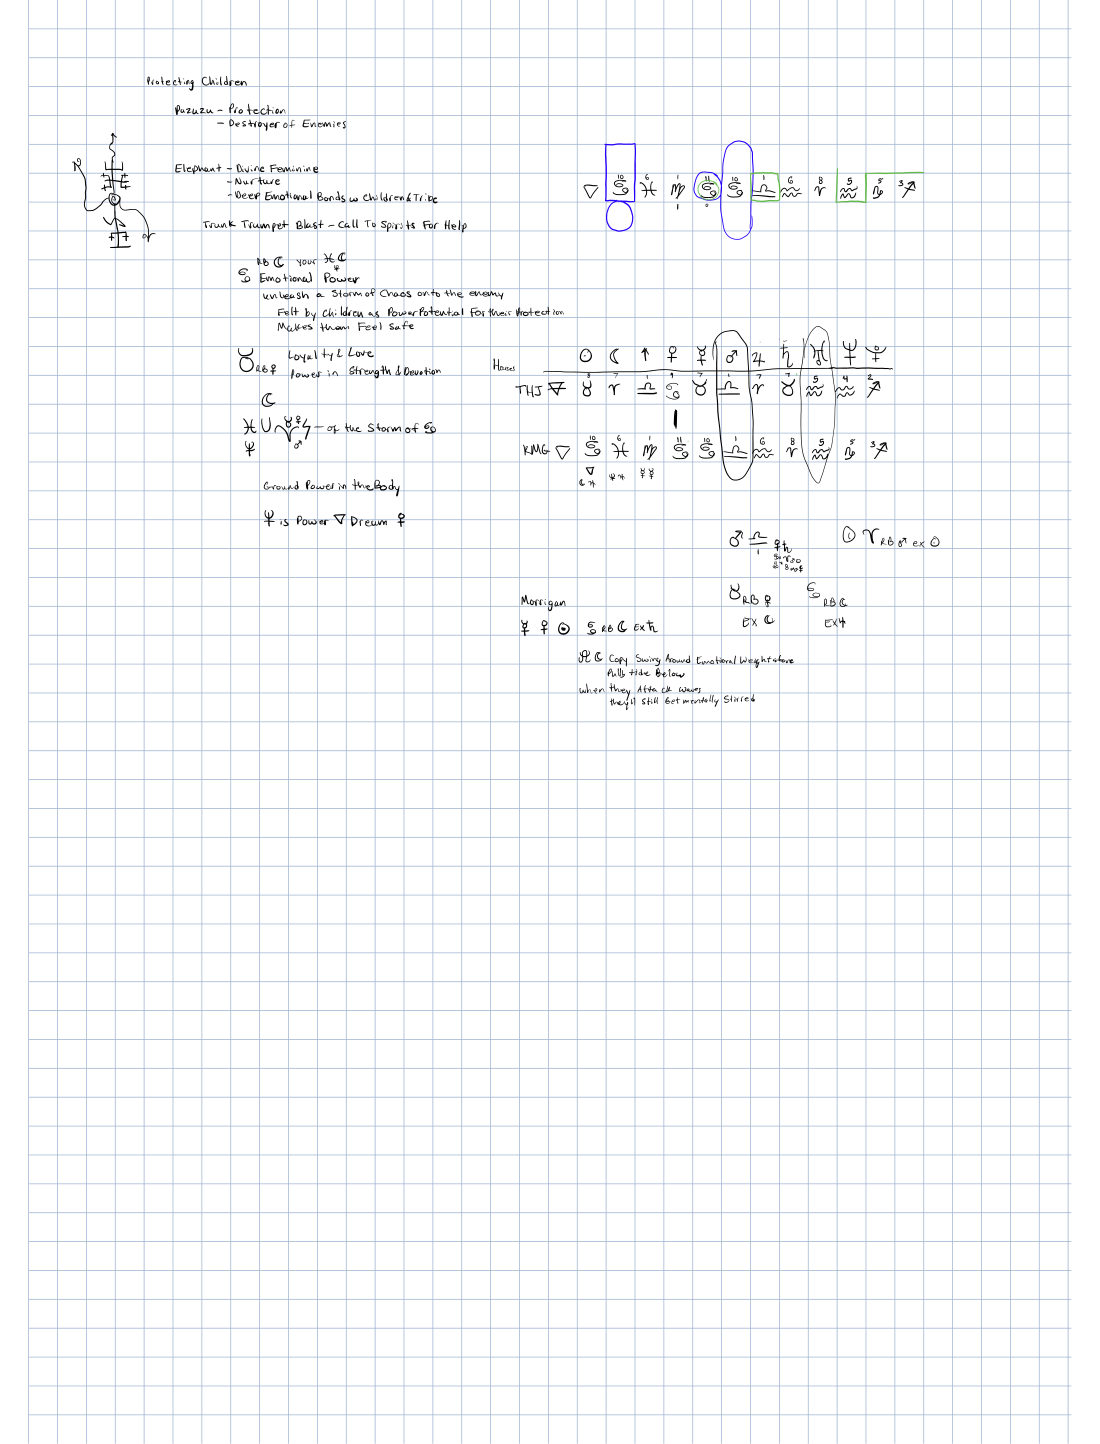 Protecting Children
Pazuzu - Protection
- Destroyer of Enemies
Elephant - Divine Feminine
- Nurture
- Deep Emotional Bonds w Children & Tribe
Trunk Trumpet Blast - Call To Spirits For Help
▽ ♋10 ♓6 ♍1 ♋11 ♋10 ♎1 ♒6 ♈8 ♒5 ♑5 ♐3
RB ☾ your ♓ ☾
♋ Emotional Power
unleash a Storm of Chaos onto the enemy
Felt by Children as Power Potential For their Protection
Makes them Feel Safe
♉ RB ♀ Loyalty & Love
Power in Strength & Devotion
☾
♓ - of the Storm of ♋
♆
Ground Power in the Body
♆ is Power ▽ Dream ♀
Houses ☉ ☾ ↑ ♀ ☿ ♂ ♃ ♄ ♅ ♆
THJ ▽ ♉8 ♈7 ♎1 ♋ ♉7 ♎1 ♈7 ♉7 ♒5 ♒4 ♐2
KMG ▽ ♋10 ♓6 ♍1 ♋11 ♋10 ♎1 ♒6 ♈8 ♒5 ♑5 ♐3
♂ ♎ 1 ♀ ♄
♈ RB ♂ EX ☉
♉ RB ♀
EX ☾
♋ RB ☾
EX ♃
Morrigan
☿ ♀ ☉ ♋ RB ☾ EX ♄
☾ Copy Swing Around Emotional Weight above
Pulls tide Below
when they Attack waves
they'll Still Get mentally Stirred